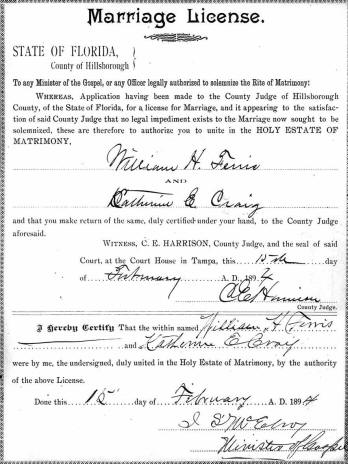 Marriage License.
STATE OF FLORIDA,
County of Hillsborough
To any Minister of the Gospel, or any Officer legally authorized to solemnize the Rite of Matrimony:
WHEREAS, Application having been made to the County Judge of Hillsborough
County, of the State of Florida, for a license for Marriage, and it appearing to the satisfac-
tion of said County Judge that no legal impediment exists to the Marriage now sought to be
solemnized, these are therefore to authorize you to unite in the HOLY ESTATE OF
MATRIMONY,
William H. Ferris
AND
Catherine E Craig
and that you make return of the same, duly certified under your hand, to the County Judge
aforesaid.
WITNESS, C. E. HARRISON, County Judge, and the seal of said
Court, at the Court House in Tampa, this 15th day
of February A. D. 1894
C E Harrison
County Judge.
I Hereby Certify That the within named William H. Ferris
and Katherine E Craig
were by me, the undersigned, duly united in the Holy Estate of Matrimony, by the authority
of the above License.
Done this 15 day of February A. D. 1894
J S McElroy
Minister of Gospel